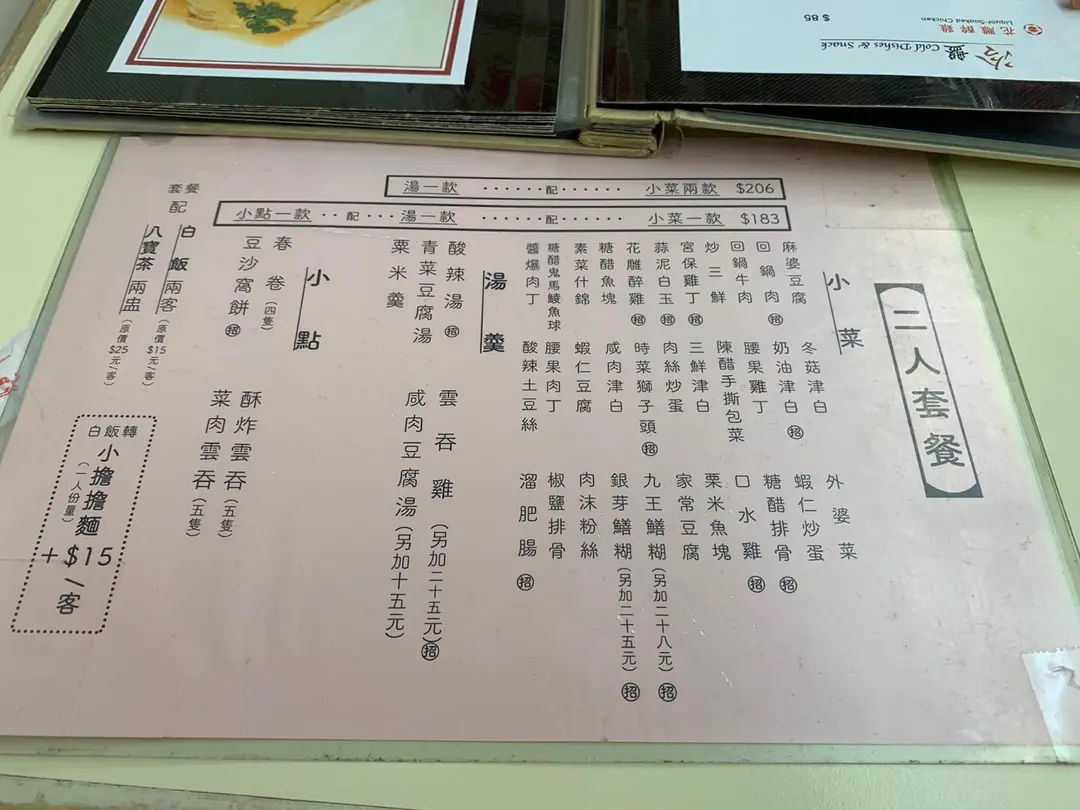 冷盤 Cold Dishes & Snack
花雕醉雞
Liquor-Soaked Chicken
$ 85
二人套餐
湯一款 ······配······ 小菜兩款 $206
小點一款 ··配···· 湯一款 ·······配······ 小菜一款 $183
小菜
麻婆豆腐
回鍋肉 招
回鍋牛肉
炒三鮮
宮保雞丁
蒜泥白玉
花雕醉雞 招
糖醋魚塊
素菜什錦
糖醋鬼馬鯪魚球
醬爆肉丁
冬菇津白
奶油津白 招
腰果雞丁
陳醋手撕包菜
三鮮津白
肉絲炒蛋
時菜獅子頭 招
咸肉津白
蝦仁豆腐
腰果肉丁
酸辣土豆絲
外婆菜
蝦仁炒蛋
糖醋排骨 招
口水雞 招
粟米魚塊
家常豆腐
九王鱔糊 (另加二十八元) 招
銀芽鱔糊 (另加二十五元) 招
肉沫粉絲
椒鹽排骨
溜肥腸 招
湯羹
酸辣湯 招
青菜豆腐湯
粟米羹
雲吞雞 (另加二十五元) 招
咸肉豆腐湯 (另加十五元)
小點
春卷 (四隻)
豆沙窩餅 招
酥炸雲吞 (五隻)
菜肉雲吞 (五隻)
套餐配
白飯兩客 (原價$15元/客)
八寶茶兩盅 (原價$25元/客)
白飯轉
小擔擔麵
(一人份量)
+$15
/客